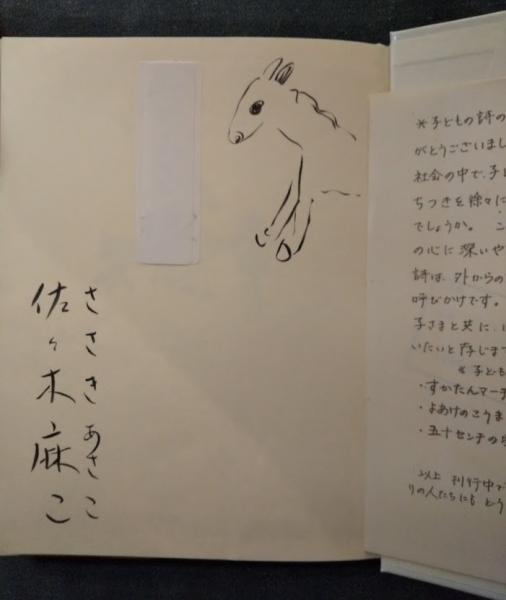 ささき あさこ
佐々木麻こ
*子どもの詩の
がとうございまし
社会の中で、子
ちつきを徐々に
でしょうか。こ
の心に深いや
詩は、外からの
呼びかけです。
子さまと共に、
いたいと存じま
*子ども
・すかたんマーチ
・よあけのこうま
・五十センチの
以上 刊行中で
りの人たちにも どう